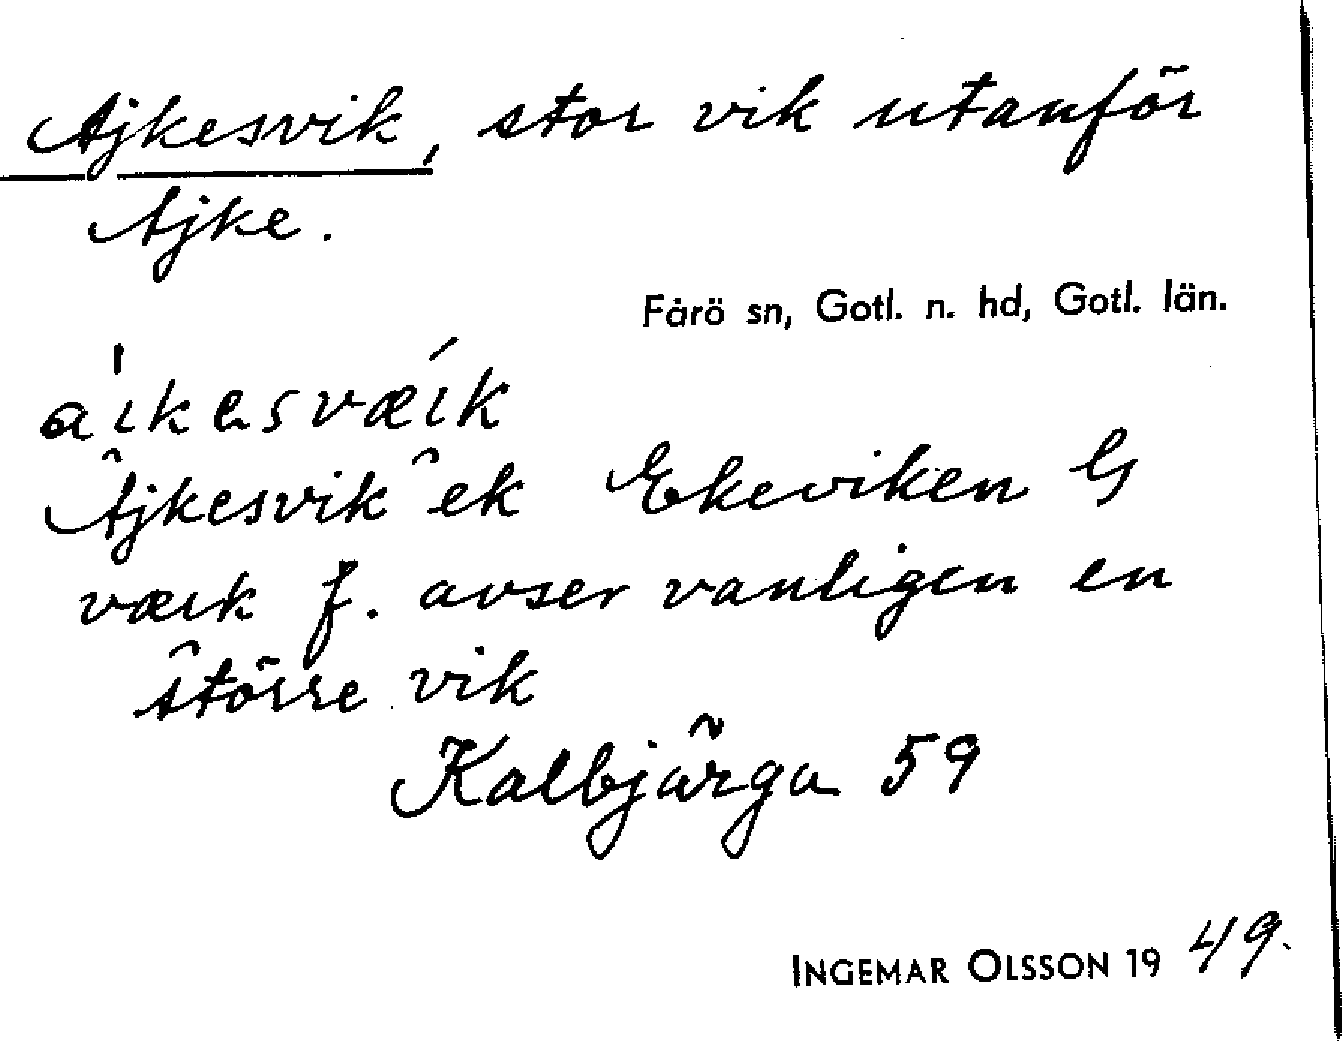 Ajkesvik, stor vik utanför
Ajke.
Fårö sn, Gotl. n. hd, Gotl. län.
a̍ıkesvǽık
Ajkesvik ek Ekeviken G
væık f. avser vanligen en
större vik
Kalbjärga 59
INGEMAR OLSSON 1949.